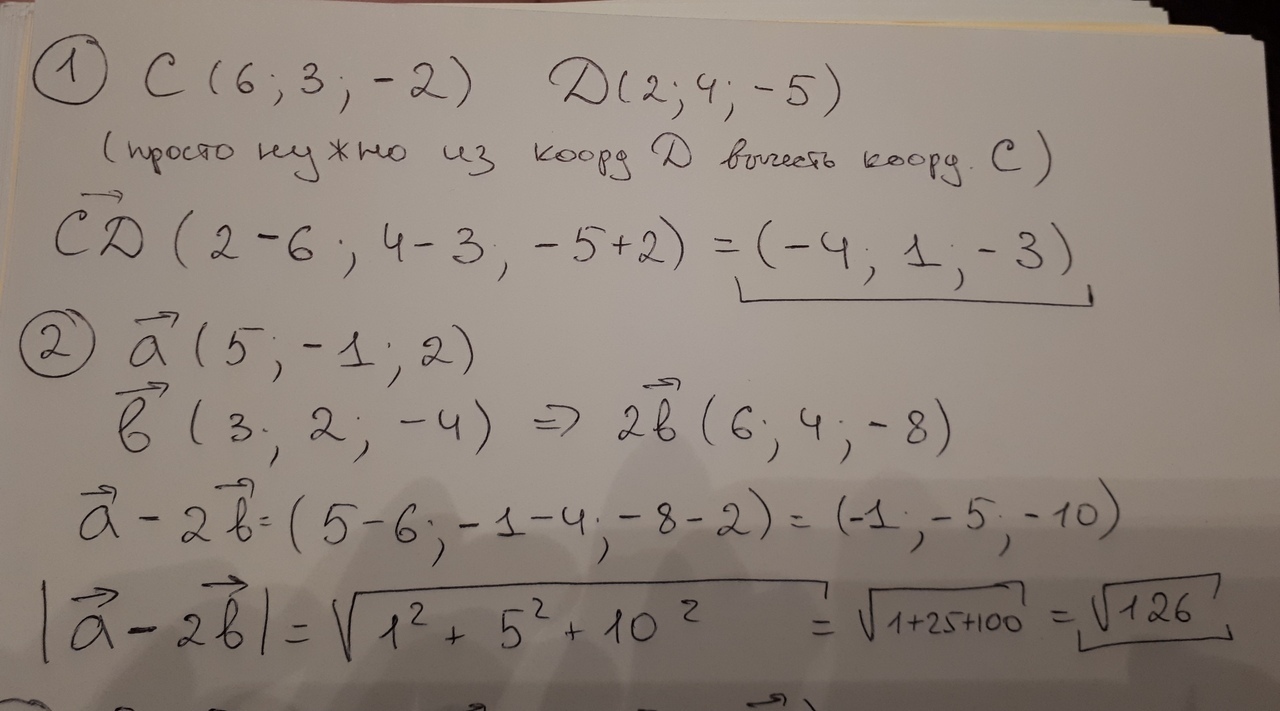 ① C (6; 3; -2) D(2; 4; -5)
(просто нужно из коорд D вычесть коорд. C)
CD→ (2-6; 4-3; -5+2) = (-4; 1; -3)
② a→ (5; -1; 2)
b→ (3; 2; -4) => 2b→ (6; 4; -8)
a→ - 2b→ = (5-6; -1-4; -8-2) = (-1; -5; -10)
|a→ - 2b→| = √(1² + 5² + 10²) = √(1+25+100) = √126